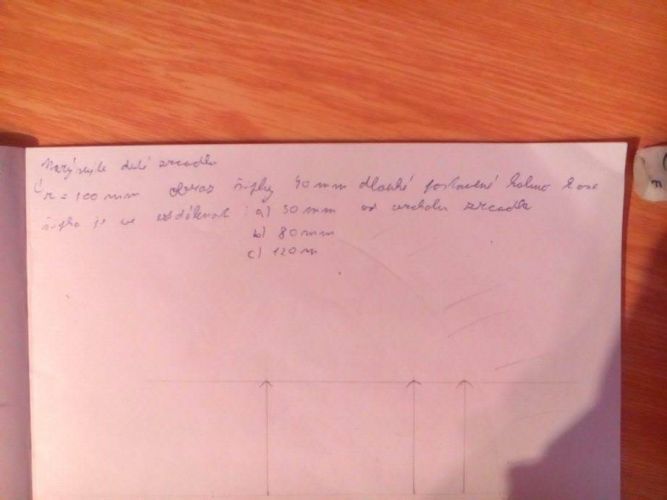 Narýsujte duté zrcadlo
r = 100 mm obraz šipky 40 mm dlouhé postavené kolmo k ose
šipka je ve vzdálenosti : a) 30 mm od vrcholu zrcadla
b) 80 mm
c) 120 m